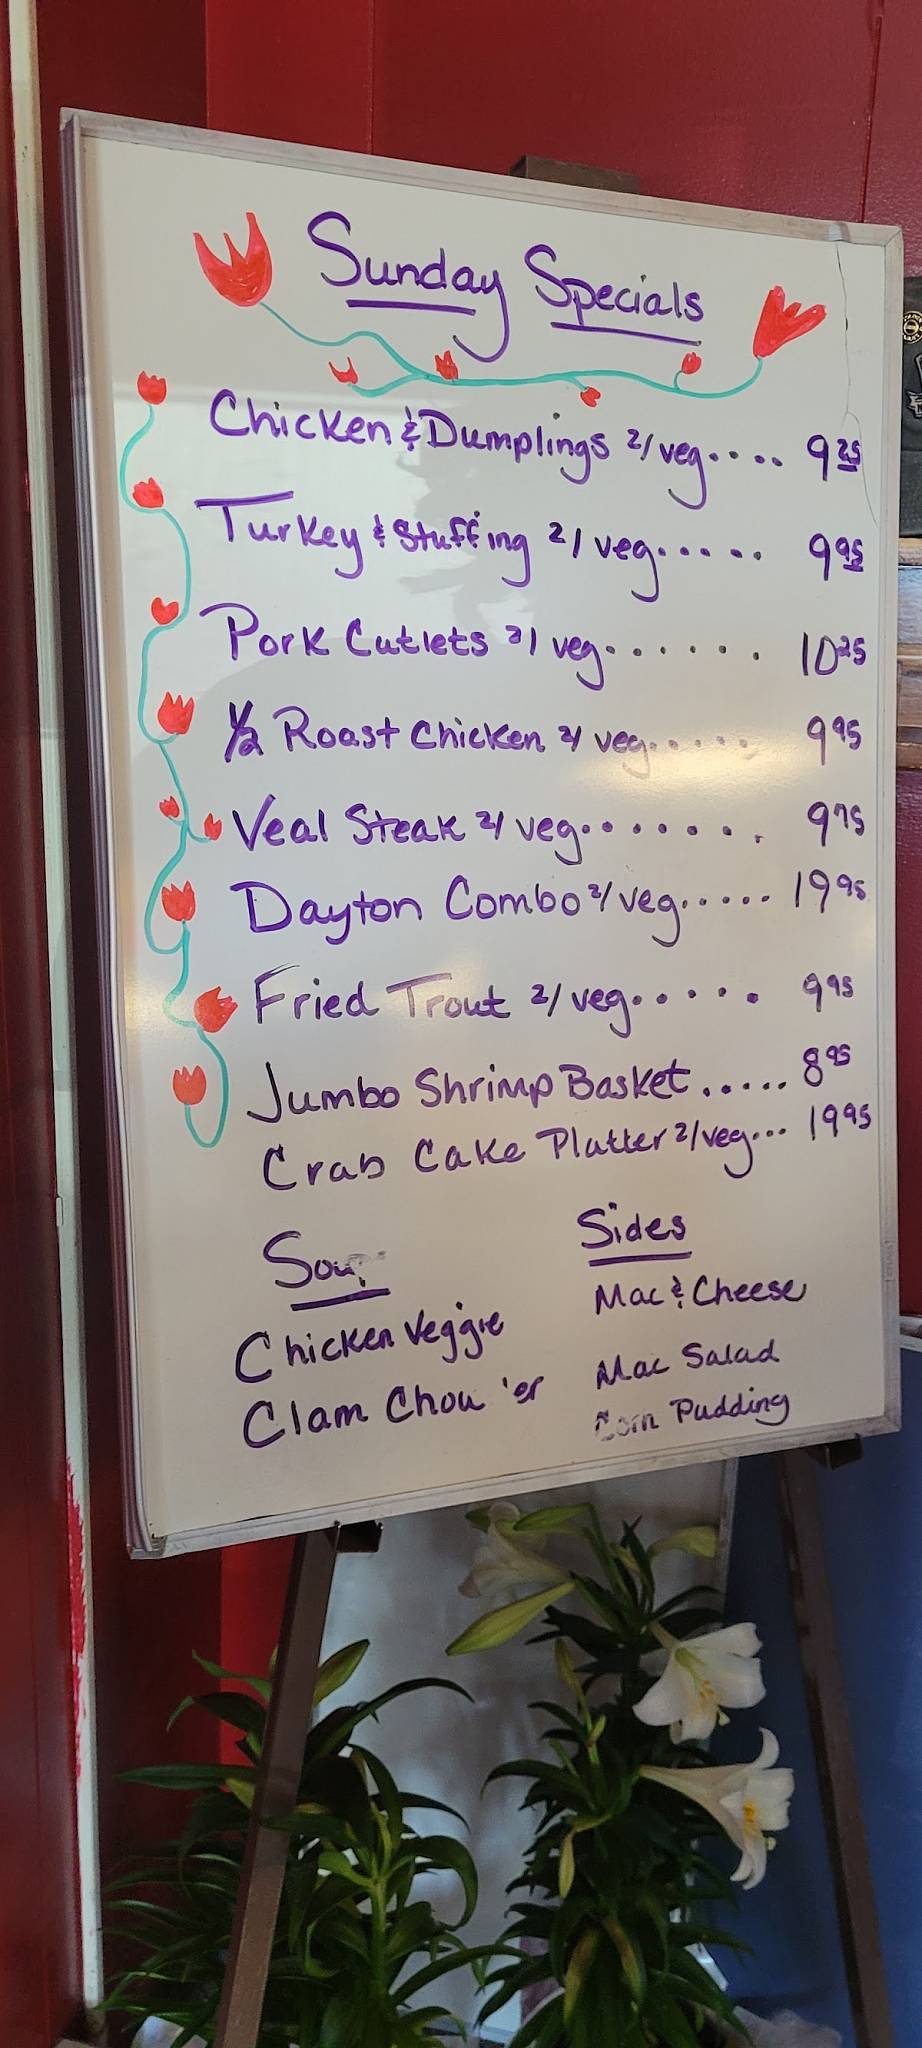 Sunday Specials
Chicken & Dumplings 2/veg.... 9 25
Turkey & Stuffing 2/veg..... 9 95
Pork Cutlets 2/veg...... 10 25
1/2 Roast Chicken 2/veg..... 9 95
Veal Steak 2/veg....... 9 75
Dayton Combo 2/veg..... 19 95
Fried Trout 2/veg..... 9 95
Jumbo Shrimp Basket ..... 8 95
Crab Cake Platter 2/veg... 19 95
Sides
Mac & Cheese
Chicken Veggie
Mac Salad
Clam
Corn Pudding